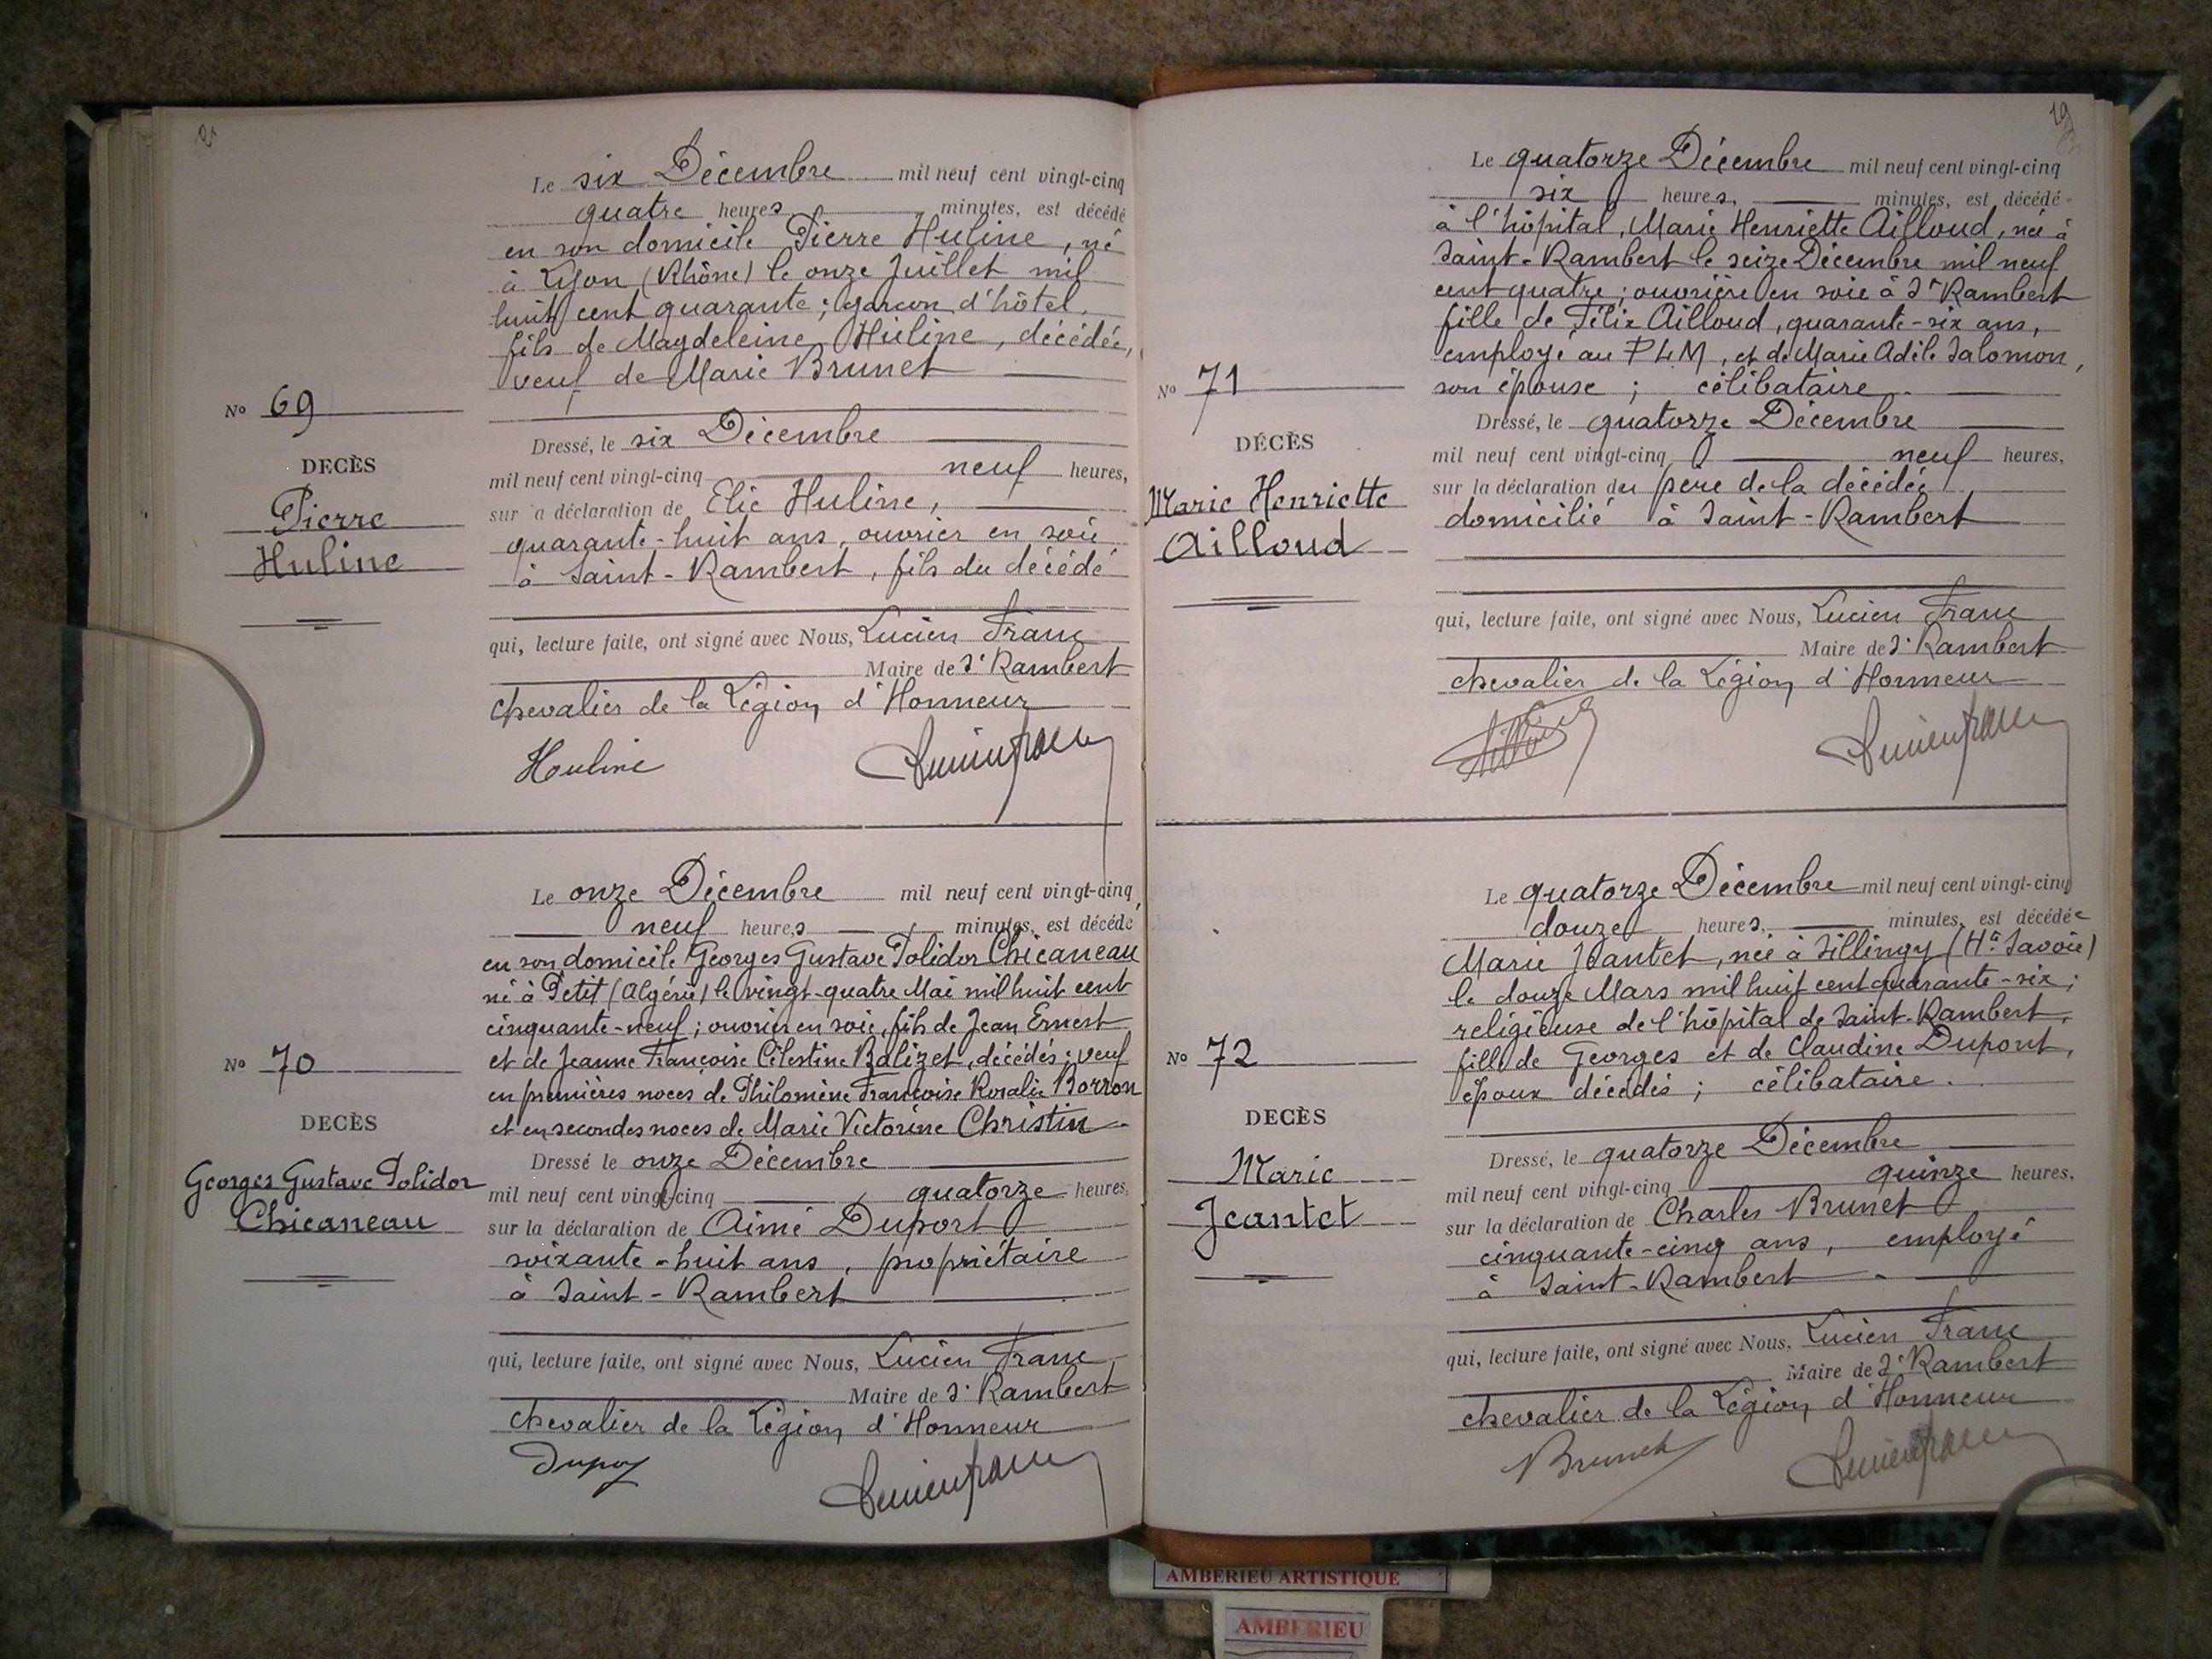 Le six Décembre mil neuf cent vingt-cinq
quatre heures minutes, est décédé
en son domicile Pierre Huline, né
à Lyon (Rhône) le onze Juillet mil
huit cent quarante ; garçon d'hôtel,
fils de Magdeleine Huline, décédée,
veuf de Marie Brunet
No 69
DECÈS
Pierre
Huline
Dressé, le six Décembre
mil neuf cent vingt-cinq neuf heures,
sur a déclaration de Elie Huline,
quarante-huit ans, ouvrier en soie
à Saint-Rambert, fils du décédé
qui, lecture faite, ont signé avec Nous, Lucien Franc
Maire de St Rambert
chevalier de la Légion d'Honneur
Huline
Lucien Franc
Le onze Décembre mil neuf cent vingt-cinq,
neuf heures minutes, est décédé
en son domicile Georges Gustave Polidor Chicaneau
né à Petit (Algérie) le vingt-quatre Mai mil huit cent
cinquante-neuf ; ouvrier en soie, fils de Jean Ernest
et de Jeanne Françoise Célestine Balizet, décédés ; veuf
en premières noces de Philomène Françoise Rosalie Borron
et en secondes noces de Marie Victorine Christin
No 70
DECÈS
Georges Gustave Polidor
Chicaneau
Dressé le onze Décembre
mil neuf cent vingt-cinq quatorze heures,
sur la déclaration de Aimé Duport
soixante-huit ans, propriétaire
à Saint-Rambert
qui, lecture faite, ont signé avec Nous, Lucien Franc
Maire de St Rambert
chevalier de la Légion d'Honneur
Lucien Franc
19
Le quatorze Décembre mil neuf cent vingt-cinq
six heures, minutes, est décédé
à l'hôpital, Marie Henriette Ailloud, née à
Saint-Rambert le seize Décembre mil neuf
cent quatre ; ouvrière en soie à St Rambert
fille de Félix Ailloud, quarante-six ans,
employé au PLM, et de Marie Adèle Salomon,
son épouse ; célibataire.
No 71
DÉCÈS
Marie Henriette
Ailloud
Dressé, le quatorze Décembre
mil neuf cent vingt-cinq neuf heures,
sur la déclaration du père de la décédée
domicilié à Saint-Rambert
qui, lecture faite, ont signé avec Nous, Lucien Franc
Maire de St Rambert
chevalier de la Légion d'Honneur
Lucien Franc
Le quatorze Décembre mil neuf cent vingt-cinq
douze heures, minutes, est décédée
Marie Jeantet, née à Sillingy (Hte Savoie)
le douze Mars mil huit cent quarante-six ;
religieuse de l'hôpital de Saint-Rambert,
fille de Georges et de Claudine Dupont,
époux décédés ; célibataire.
No 72
DECÈS
Marie
Jeantet
Dressé, le quatorze Décembre
mil neuf cent vingt-cinq quinze heures,
sur la déclaration de Charles Brunet
cinquante-cinq ans, employé
à Saint-Rambert
qui, lecture faite, ont signé avec Nous, Lucien Franc
Maire de St Rambert
chevalier de la Légion d'Honneur
Brunet
Lucien Franc
AMBERIEU ARTISTIQUE
AMBERIEU